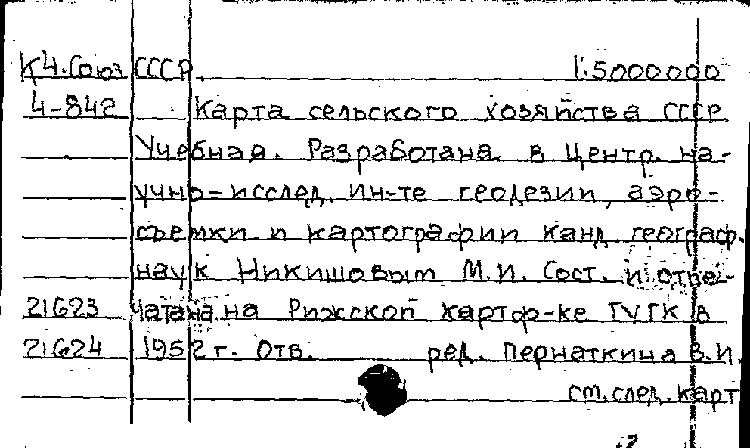 К4.Союз СССР. 1:5000000
4-842 Карта сельского хозяйства СССР
Учебная. Разработана в Центр. на-
учно-исслед. ин-те геодезии, аэро-
съемки и картографии канд. географ.
наук Никишовым М.И. Сост. и отпе-
21623 чатана на Рижской картф-ке ГУГК в
21624 1952 г. Отв. ред. Пернаткина В.И.
см. след. карт